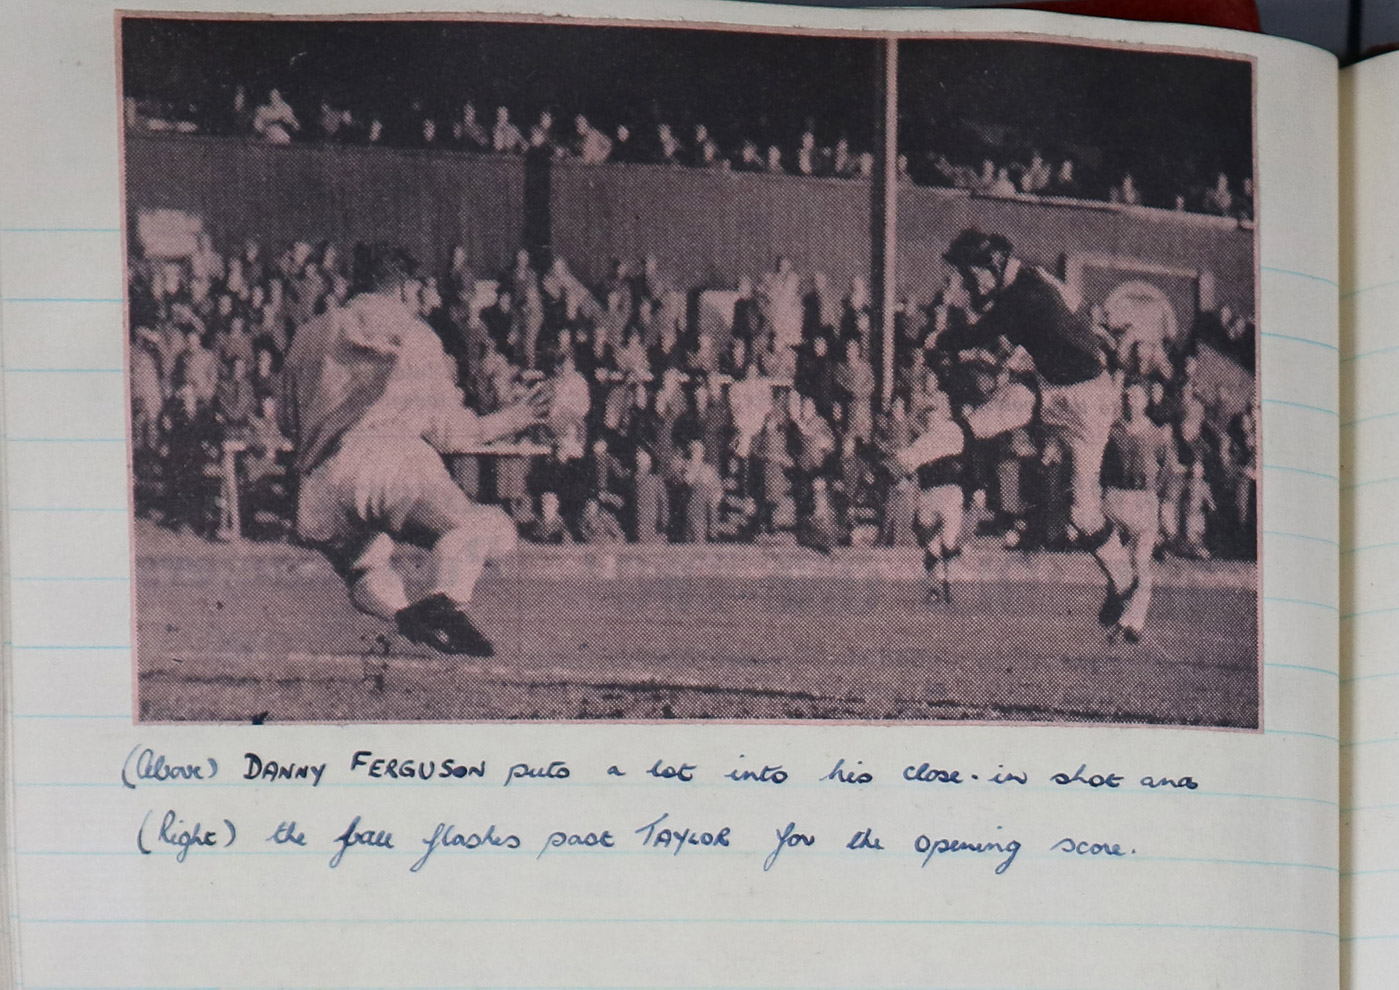 (Above) DANNY FERGUSON puts a lot into his close-in shot and
(Right) the ball flashes past TAYLOR for the opening score.